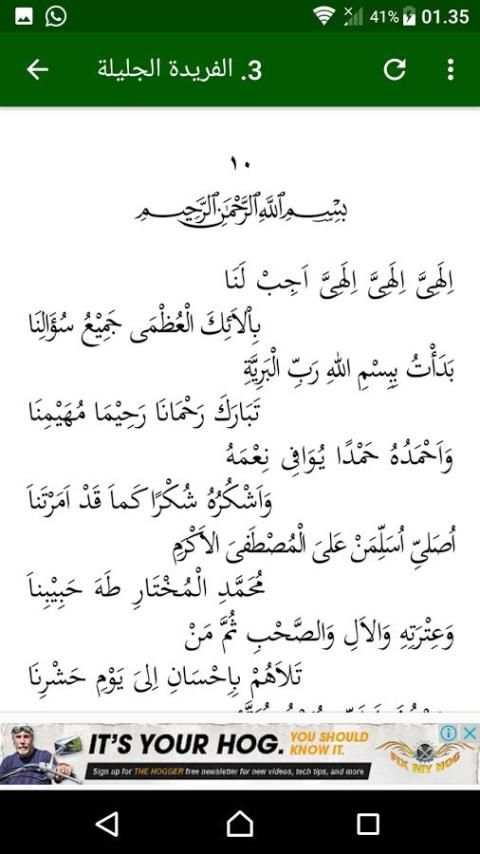 41% 01.35
3. الفريدة الجليلة
١٠
بِسْمِ اللَّهِ الرَّحْمَٰنِ الرَّحِيمِ
اِلٰهِىَّ اِلٰهِىَّ اِلٰهِىَّ اَجِبْ لَنَا
بِاْلاَئِكَ الْعُظْمَى جَمِيْعُ سُؤَالِنَا
بَدَأْتُ بِبِسْمِ اللهِ رَبِّ الْبَرِيَّةِ
تَبَارَكَ رَحْمَانَا رَحِيْمَا مُهَيْمِنَا
وَاَحْمَدُهُ حَمْدًا يُوَافِى نِعْمَهُ
وَاَشْكُرُهُ شُكْرًا كَماَ قَدْ اَمَرْتَناَ
اُصَلِىّ اُسَلِّمَنْ عَلىَ الْمُصْطَفىَ الاَكْرَمِ
مُحَمَّدِ الْمُخْتَارِ طَهَ حَبِيْبِناَ
وَعِتْرَتِهِ وَالاَلِ وَالصَّحْبِ ثُمَّ مَنْ
تَلاَهُمْ بِاِحْسَانِ اِلىَ يَوْمِ حَشْرِنَا
IT'S YOUR HOG. YOU SHOULD KNOW IT.
Sign up for THE HOGGER free newsletter for new videos, tech tips, and more
FIX MY HOG